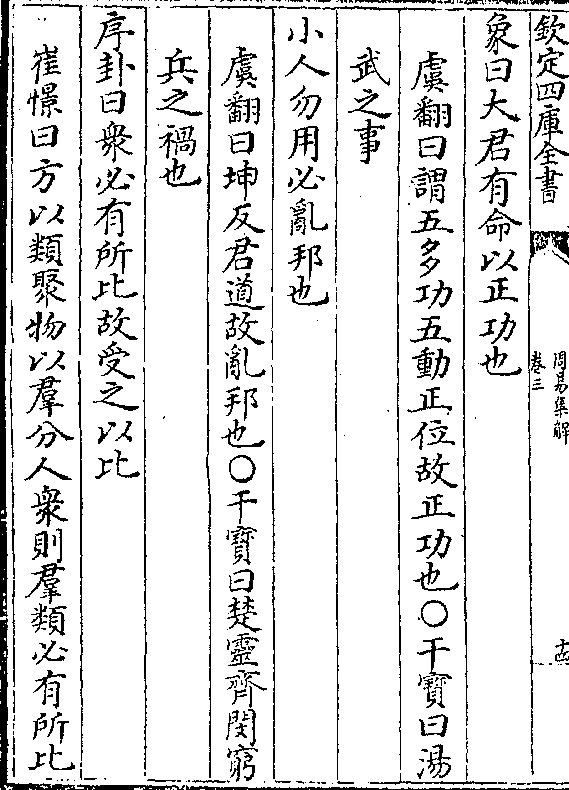 欽定四庫全書
周易集解
卷三
十四
象曰大君有命以正功也
虞翻曰謂五多功五動正位故正功也〇干寶曰湯
武之事
小人勿用必亂邦也
虞翻曰坤反君道故亂邦也〇干寶曰楚靈齊閔窮
兵之禍也
序卦曰衆必有所比故受之以比
崔憬曰方以類聚物以羣分人衆則羣類必有所比